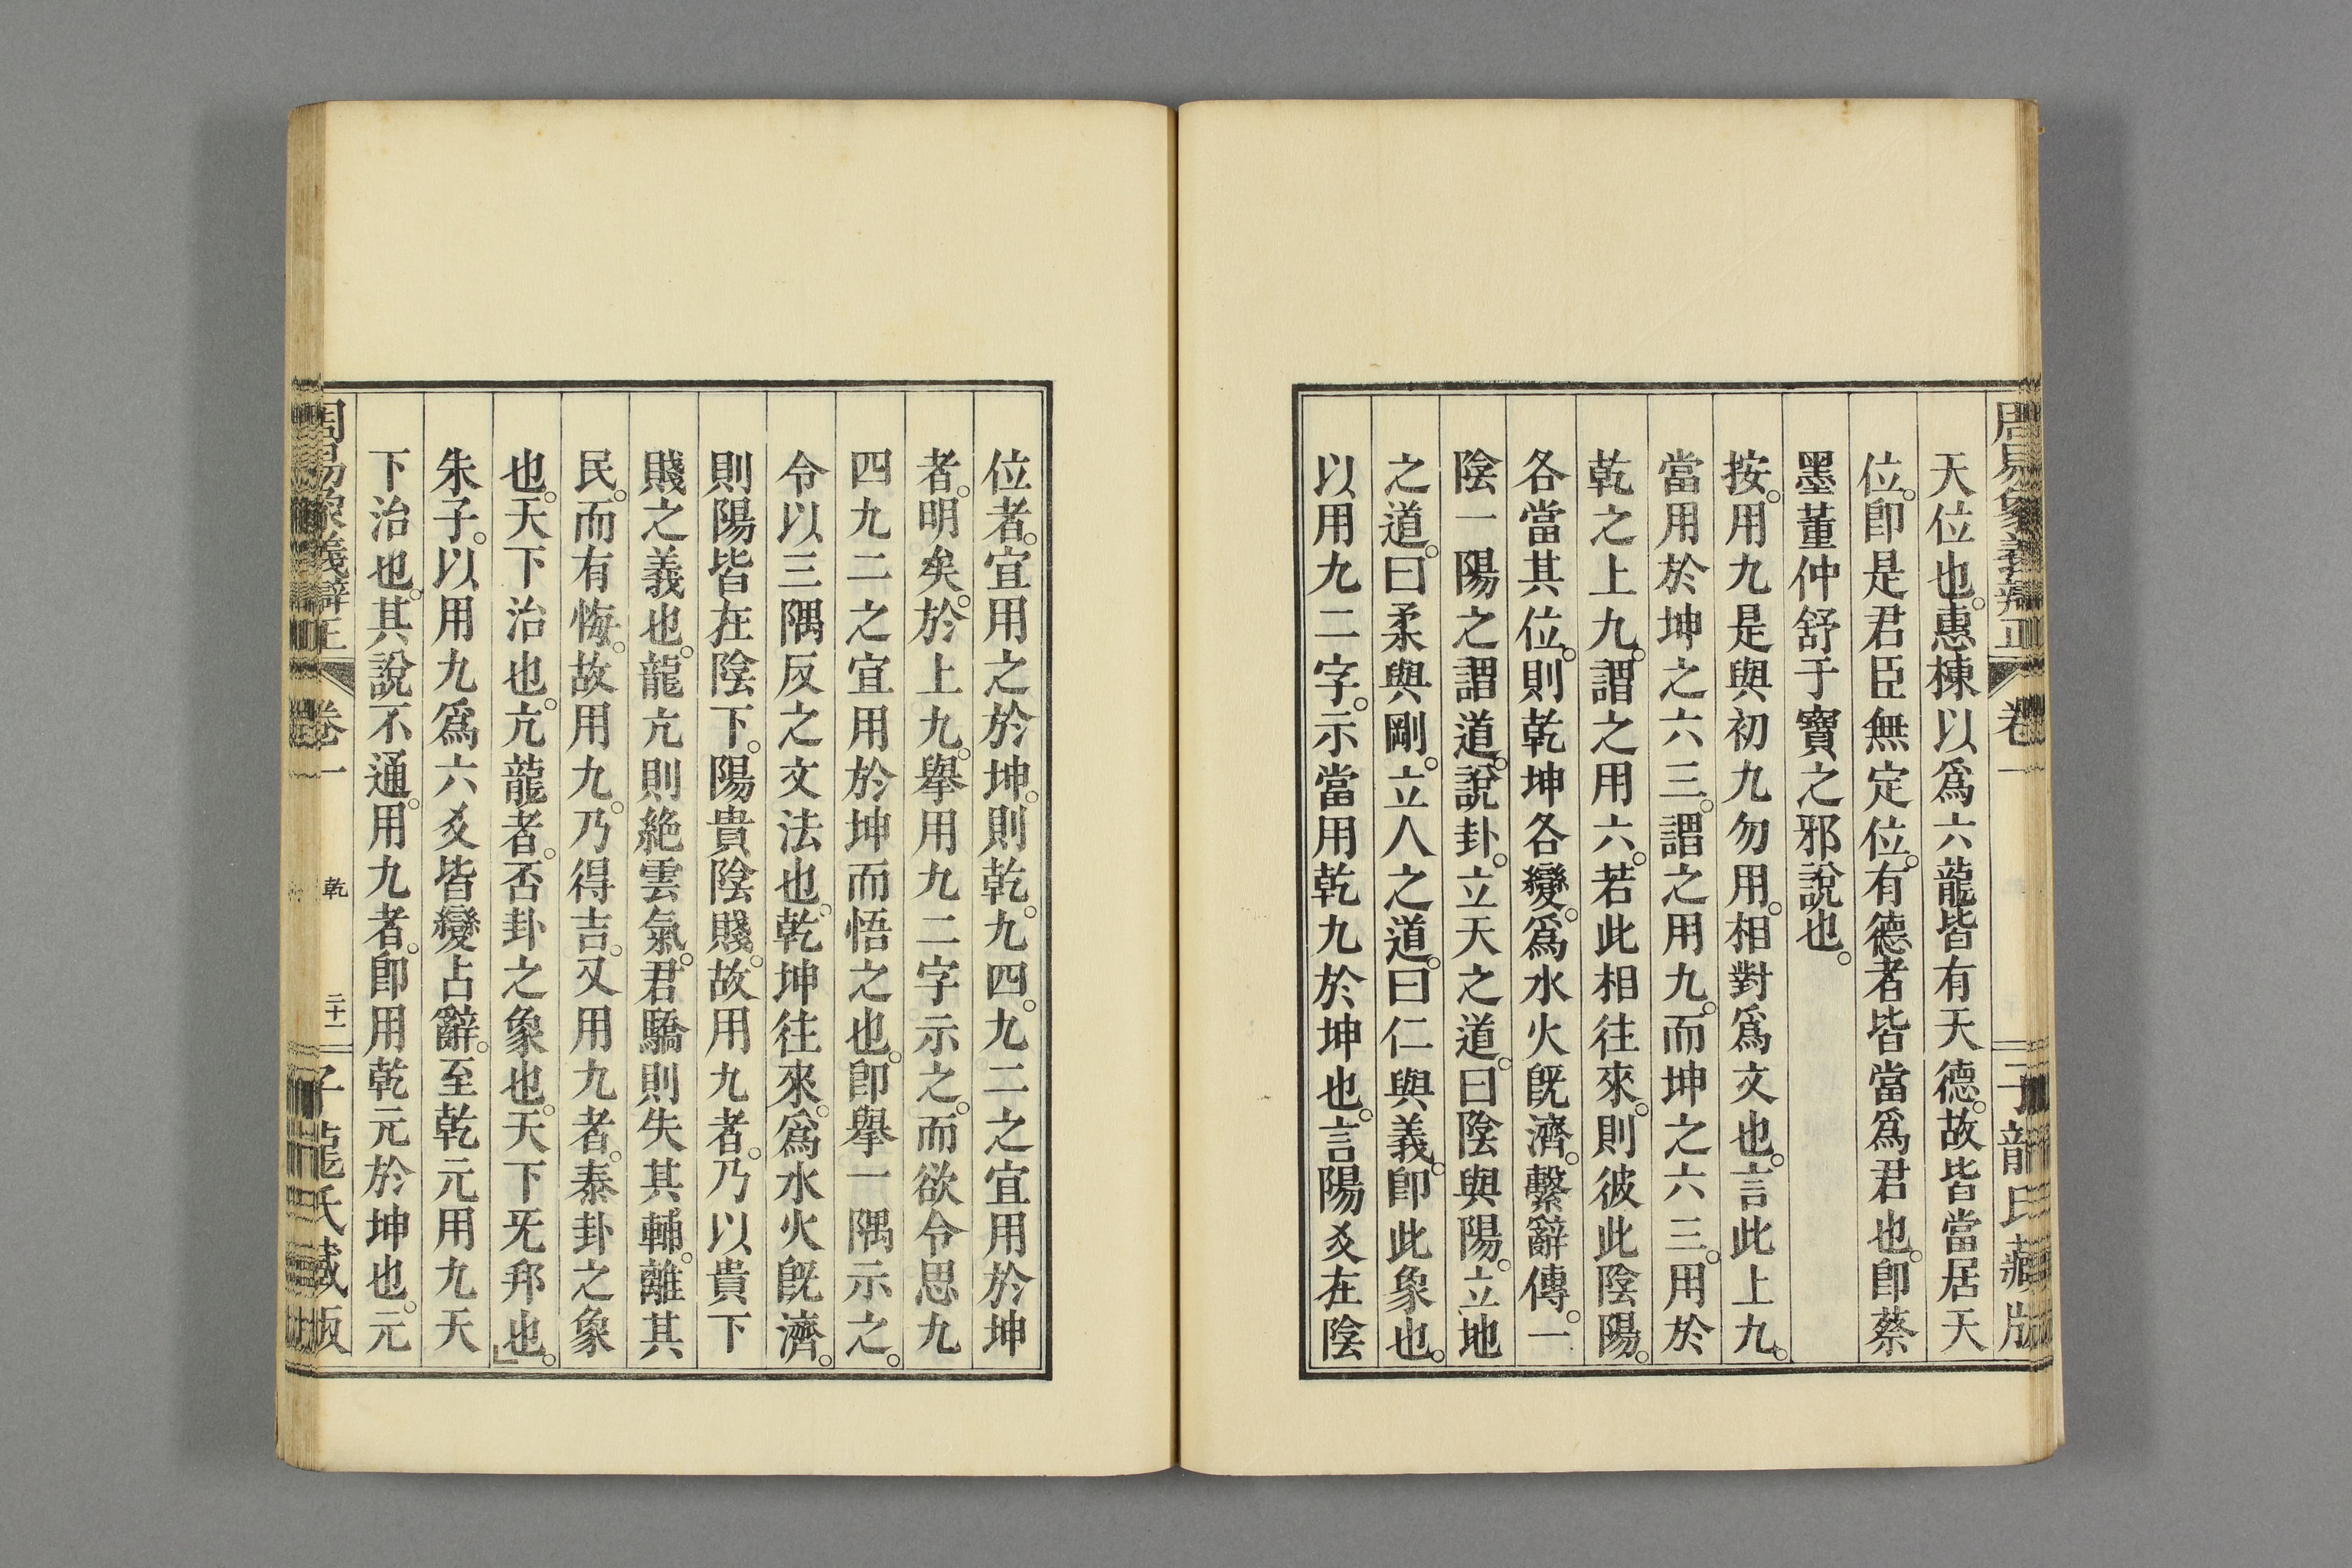 周易象義辯正 卷一 子龍氏藏版
天位也。惠棟以爲六龍皆有天德。故皆當居天
位。卽是君臣無定位。有德者皆當爲君也。卽蔡
墨董仲舒于寶之邪說也。
按。用九是與初九勿用。相對爲文也。言此上九。
當用於坤之六三。謂之用九。而坤之六三。用於
乾之上九。謂之用六。若此相往來。則彼此陰陽。
各當其位。則乾坤各變。爲水火旣濟。繫辭傳。一
陰一陽之謂道。說卦。立天之道。曰陰與陽。立地
之道。曰柔與剛。立人之道。曰仁與義。卽此象也。
以用九二字。示當用乾九於坤也。言陽爻在陰
位者。宜用之於坤。則乾。九四。九二之宜用於坤
者。明矣。於上九。舉用九二字示之。而欲令思九
四九二之宜用於坤而悟之也。卽舉一隅示之。
令以三隅反之文法也。乾坤往來。爲水火旣濟。
則陽皆在陰下。陽貴陰賤。故用九者。乃以貴下
賤之義也。龍亢則絶雲氣。君驕則失其輔。離其
民。而有悔。故用九。乃得吉。又用九者。泰卦之象
也。天下治也。亢龍者。否卦之象也。天下旡邦也。」
朱子。以用九爲六爻皆變占辭。至乾元用九天
下治也。其說不通。用九者。卽用乾元於坤也。元
周易象義辯正 卷一 乾 二十二 子龍氏藏版